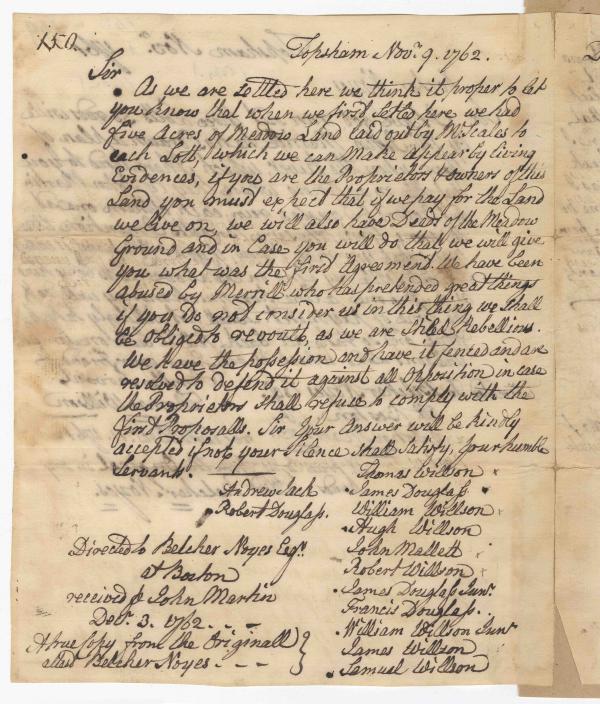 150.
Topsham Nov.r 9. 1762.
Sir
As we are Settled here we think it proper to let
you know that when we first Setled here we had
five Acres of Medow Land laid out by Mr. Scales to
each Lott, which we can Make appear by living
Evidences, if you are the Proprietors & owners of this
Land you must expect that if we pay for the Land
we live on, we will also have Deads of the Meadow
Ground and in Case you will do that we will give
you what was the first Agreement. We have been
abused by Merrill who has pretended great things
if you do not consider us in this thing we shall
be obliged to revoult, as we are Stiled Rebellious.
We have the possession and have it fenced and are
resolved to defend it against all Opposition in case
the Proprietors shall refuce to comply with the
first Proposalls. Sir Your Answer will be kindly
accepted if not your Silence shall Satisfy, your humble
Servants.
Thomas Willson
Andrew Jack
James Douglass
Robert Douglass.
William Willson
Hugh Willson
Directed to Belcher Noyes Esq.r
John Mallett
at Boston
Robert Willson
received p John Martin
James Douglass Jun.r
Dec.r 3. 1762.
Francis Douglass.
William Willson Jun.r
A true Copy from the Originall
James Willson
attest Belcher Noyes
Samuel Willson